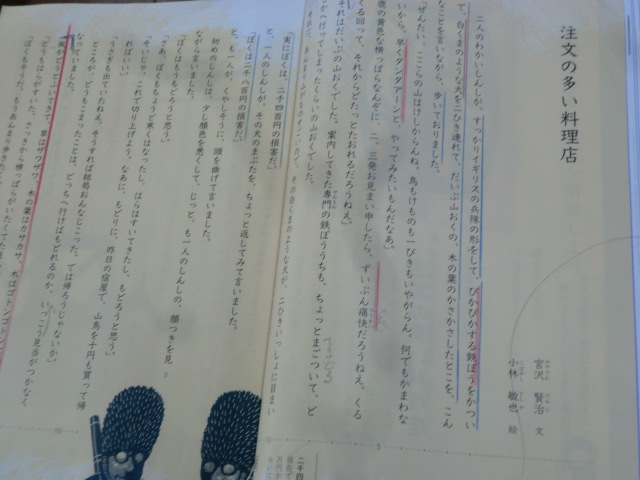 注文の多い料理店
宮沢 賢治 文
小林 敏也 絵
二人のわかいしんしが、すっかりイギリスの兵隊の形をして、ぴかぴかする鉄ぽうをかつい
で、白くまのような犬を二ひき連れて、だいぶ山おくの、木の葉のかさかさしたとこを、こん
なことを言いながら、歩いておりました。
「ぜんたい、ここらの山はけしからんね。鳥もけものも一ぴきもいやがらん。何でもかまわな
いから、早くタンタアーンと、やってみたいもんだなあ。」
鹿の黄色な横っぱらなんぞに、二、三発お見まい申したら、ずいぶん痛快だろうねえ。くる
くる回って、それからどたっとたおれるだろうねえ。」
それはだいぶの山おくでした。案内してきた専門の鉄ぽううちも、ちょっとまごついて、ど
こかへ行ってしまったくらいの山おくでした。
二ひきいっしょに目まい
「実にぼくは、二千四百円の損害だ。」
と、一人のしんしが、その犬のまぶたを、ちょっと返してみて言いました。
「ぼくは二千八百円の損害だ。」
と、も一人が、くやしそうに、頭を曲げて言いました。
初めのしんしは、少し顔色を悪くして、じっと、も一人のしんしの、顔つきを見
ながら言いました。
「ぼくはもうもどろうと思う。」
「さあ、ぼくもちょうど寒くはなったし、はらはすいてきたし、もどろうと思う。」
「そいじゃ、これで切り上げよう。なあに、もどりに、昨日の宿屋で、山鳥を十円も買って帰
ればいい。」
「うさぎも出ていたねえ。そうすれば結局おんなじこった。では帰ろうじゃないか。」
ところが、どうもこまったことは、どっちへ行けばもどれるのか、いっこう見当がつかなく
なっていました。
風がどうとふいてきて、草はザワザワ、木の葉はカサカサ、木はゴトンゴトン
「どうもはらがすいた。さっきから横っぱらがいたくてたまら
「ぼくもそうだ。もうあんまり歩きた
二千四
現在で
万円か